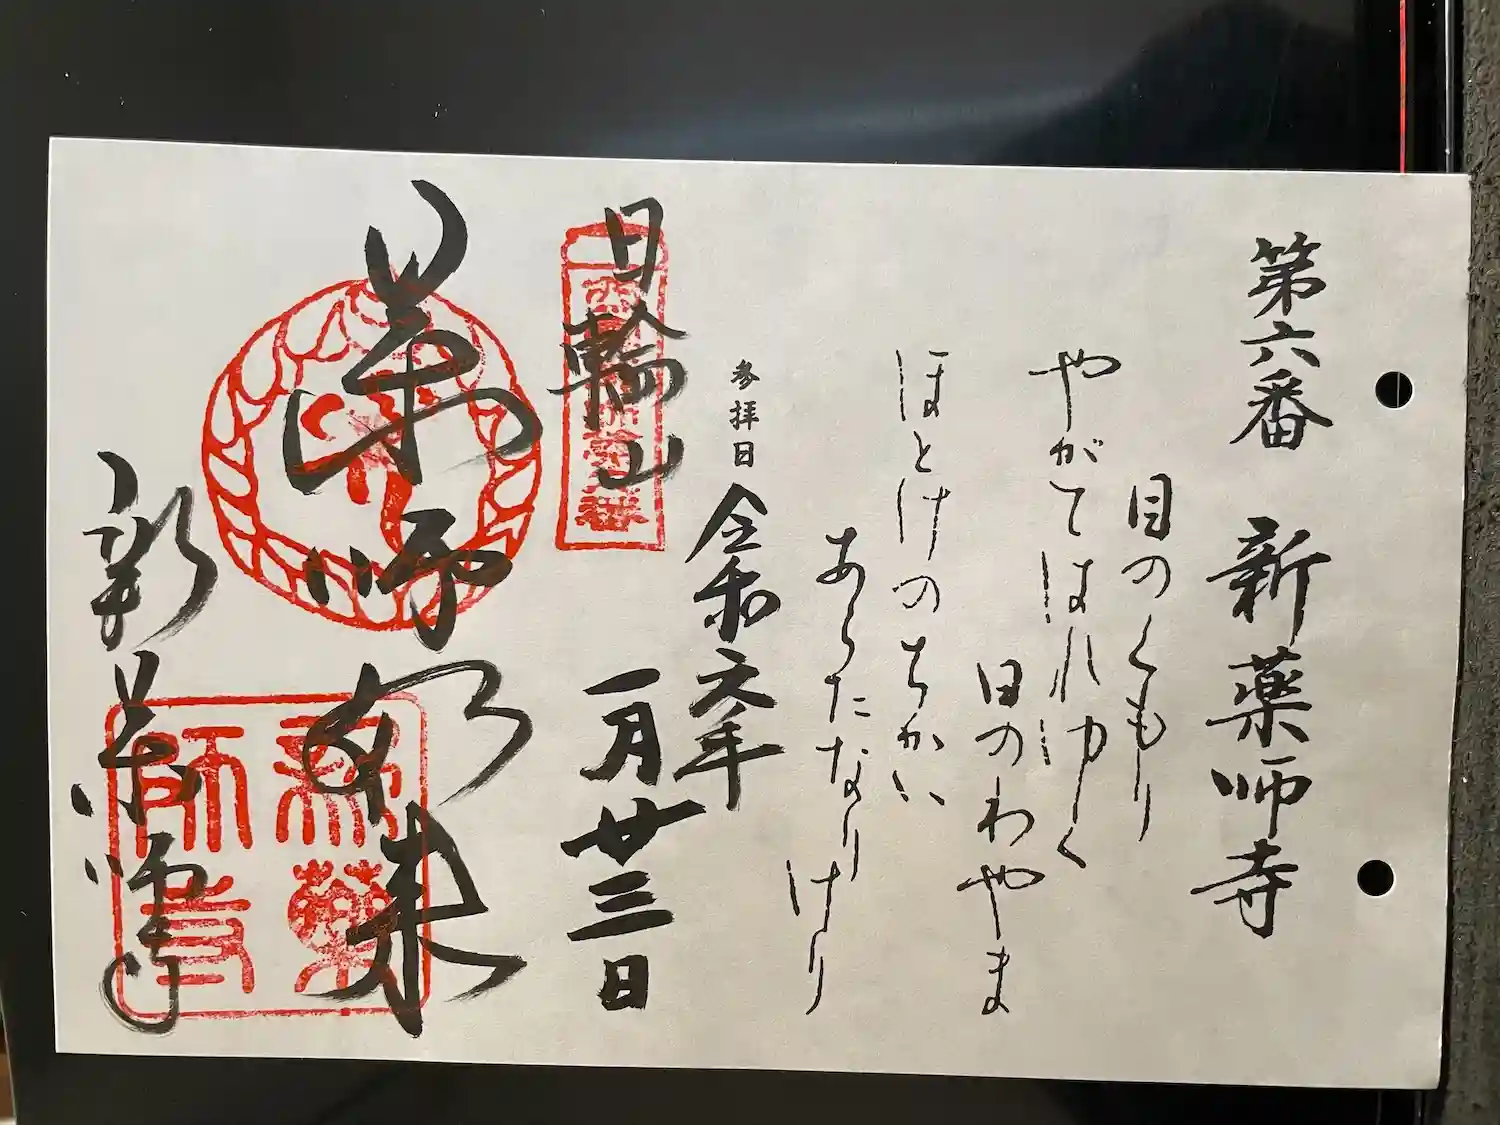 第六番 新薬師寺
目のくもり
やがてはれゆく
日のわやま
ほとけのちかい
あらたなりけり
参拝日 令和六年
一月廿三日
日輪山
薬師如来
新薬師寺
新薬師寺